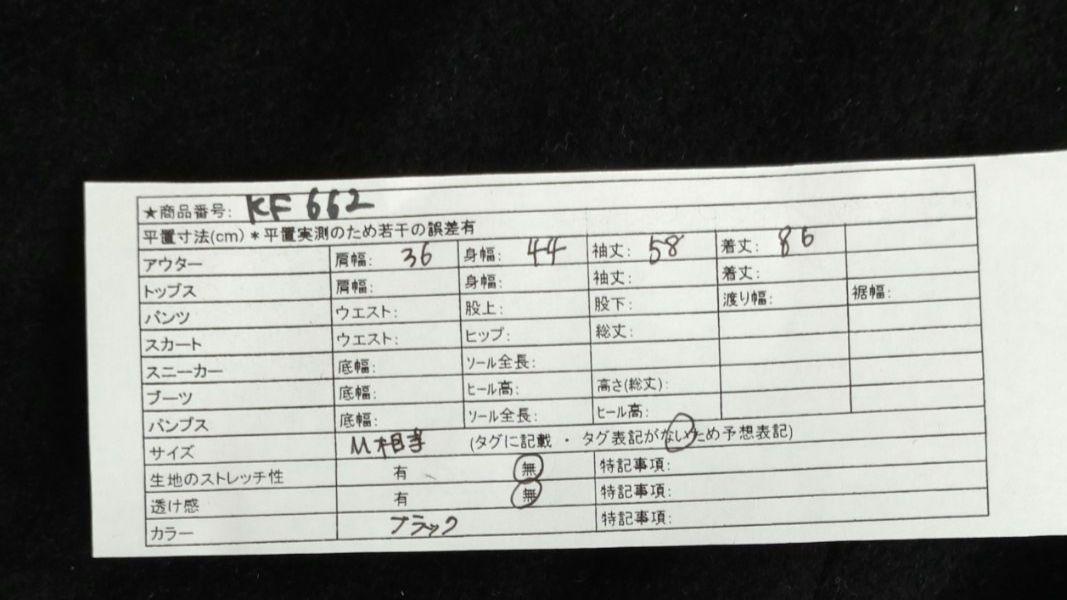 ★商品番号: KF662
平置寸法(cm) *平置実測のため若干の誤差有
アウター 肩幅: 36 身幅: 44 袖丈: 58 着丈: 86
トップス 肩幅: 身幅: 袖丈: 着丈:
パンツ ウエスト: 股上: 股下: 渡り幅: 裾幅:
スカート ウエスト: ヒップ: 総丈:
スニーカー 底幅: ソール全長:
ブーツ 底幅: ヒール高: 高さ(総丈):
パンプス 底幅: ソール全長: ヒール高:
サイズ M相当 (タグに記載 ・ タグ表記がないため予想表記)
生地のストレッチ性 有 無 特記事項:
透け感 有 無 特記事項:
カラー ブラック 特記事項: